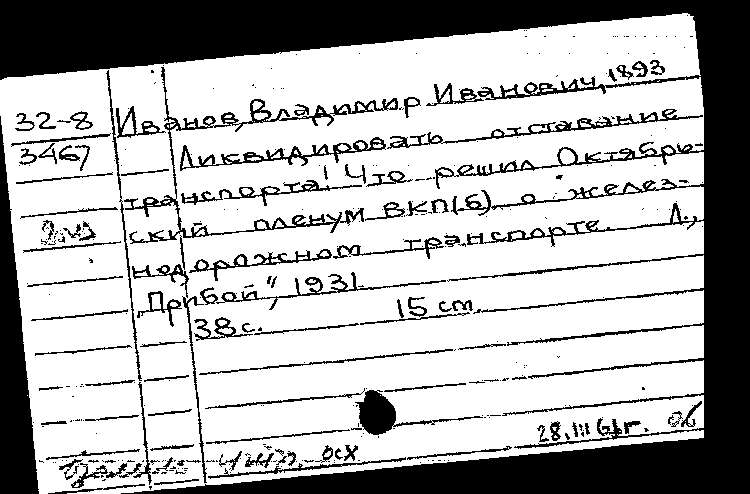 32-8 Иванов, Владимир Иванович, 1893
3467 Ликвидировать отставание
транспорта! Что решил Октябрь-
ский пленум ВКП(б) о желез-
нодорожном транспорте. Л.,
„Прибой", 1931.
38 с. 15 cm.
28.III 61г.
осх